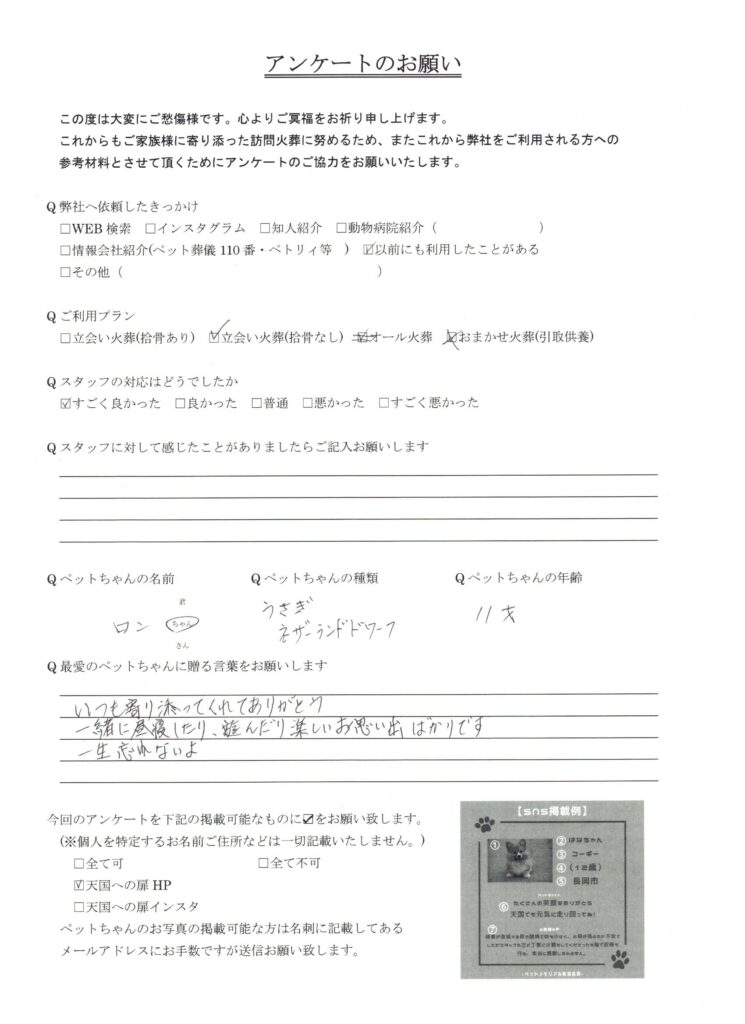 アンケートのお願い
この度は大変にご愁傷様です。心よりご冥福をお祈り申し上げます。
これからもご家族様に寄り添った訪問火葬に努めるため、またこれから弊社をご利用される方への
参考材料とさせて頂くためにアンケートのご協力をお願いいたします。
Q 弊社へ依頼したきっかけ
□WEB 検索 □インスタグラム □知人紹介 □動物病院紹介（ ）
□情報会社紹介(ペット葬儀 110 番・ペトリィ等 ) ☑以前にも利用したことがある
□その他（ ）
Q ご利用プラン
□立会い火葬(拾骨あり) ☑立会い火葬(拾骨なし) ☑オール火葬 ☑おまかせ火葬(引取供養)
Q スタッフの対応はどうでしたか
☑すごく良かった □良かった □普通 □悪かった □すごく悪かった
Q スタッフに対して感じたことがありましたらご記入お願いします
Q ペットちゃんの名前 Q ペットちゃんの種類 Q ペットちゃんの年齢
君
ロン ちゃん うさぎ 11才
ネザーランドドワーフ
さん
Q 最愛のペットちゃんに贈る言葉をお願いします
いつも寄り添ってくれてありがとう
一緒に昼寝したり、遊んだり楽しいお思い出ばかりです
一生忘れないよ
今回のアンケートを下記の掲載可能なものに☑をお願い致します。
(※個人を特定するお名前ご住所などは一切記載いたしません。)
□全て可 □全て不可
☑天国への扉 HP
□天国への扉インスタ
ペットちゃんのお写真の掲載可能な方は名刺に記載してある
メールアドレスにお手数ですが送信お願い致します。
【sns掲載例】
① ② はなちゃん
③ コーギー
④ (12歳)
⑤ 長岡市
⑥ たくさんの笑顔をありがとう
天国でも元気に走り回ってね!
⑦